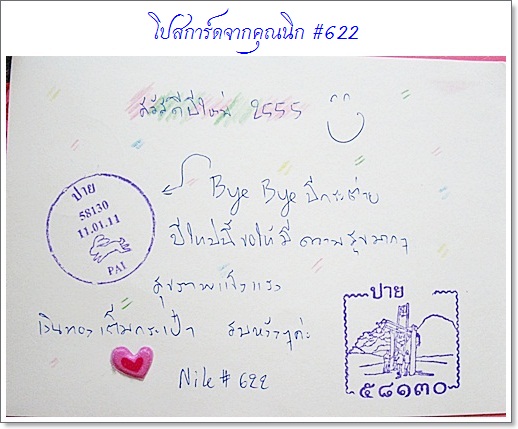 โปสการ์ดจากคุณนิก #622
สวัสดีปีใหม่ 2555
Bye Bye ปีกระต่าย
ปาย
58130
11.01.11
PAI
ปีใหม่นี้ ขอให้มี ความสุขมากๆ
สุขภาพแข็งแรง
เงินทองเต็มกระเป๋า สมหวังค่ะ
Nik # 622
ปาย
๕๘๑๓๐